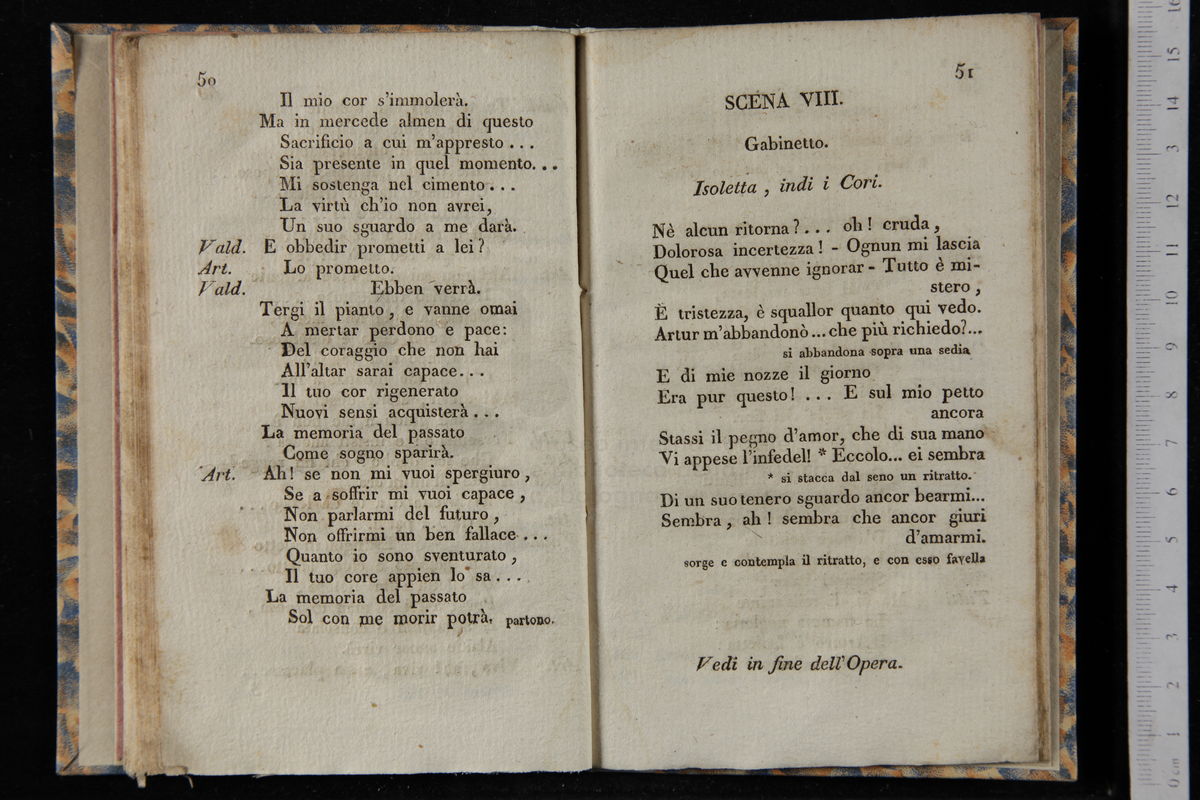 50
Il mio cor s'immolerà.
Ma in mercede almen di questo
Sacrificio a cui m'appresto . . .
Sia presente in quel momento. . .
Mi sostenga nel cimento . . .
La virtù ch'io non avrei,
Un suo sguardo a me darà.
Vald. E obbedir prometti a lei ?
Art. Lo prometto.
Vald. Ebben verrà.
Tergi il pianto , e vanne omai
A mertar perdono e pace:
Del coraggio che non hai
All'altar sarai capace. . .
Il tuo cor rigenerato
Nuovi sensi acquisterà . . .
La memoria del passato
Come sogno sparirà.
Art. Ah! se non mi vuoi spergiuro ,
Se a soffrir mi vuoi capace ,
Non parlarmi del futuro ,
Non offrirmi un ben fallace . . .
Quanto io sono sventurato ,
Il tuo core appien lo sa . . .
La memoria del passato
Sol con me morir potrà. partono.
51
SCENA VIII.
Gabinetto.
Isoletta , indi i Cori.
Nè alcun ritorna ? . . . oh ! cruda ,
Dolorosa incertezza ! - Ognun mi lascia
Quel che avvenne ignorar - Tutto è mi-
stero ,
È tristezza, è squallor quanto qui vedo.
Artur m'abbandonò ... che più richiedo?...
si abbandona sopra una sedia
E di mie nozze il giorno
Era pur questo! . . . E sul mio petto
ancora
Stassi il pegno d'amor, che di sua mano
Vi appese l'infedel! * Eccolo... ei sembra
* si stacca dal seno un ritratto.
Di un suo tenero sguardo ancor bearmi...
Sembra , ah ! sembra che ancor giuri
d'amarmi.
sorge e contempla il ritratto, e con esso favella
Vedi in fine dell'Opera.
0 cm 1 2 3 4 5 6 7 8 9 10 11 12 13 14 15 16